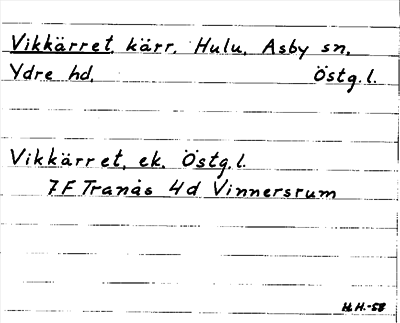 Vikkärret, kärr, Hulu, Asby sn,
Ydre hd, Östg.l.
Vikkärret, ek. Östg.l.
7F Tranås 4d Vinnersrum
H.H.-58